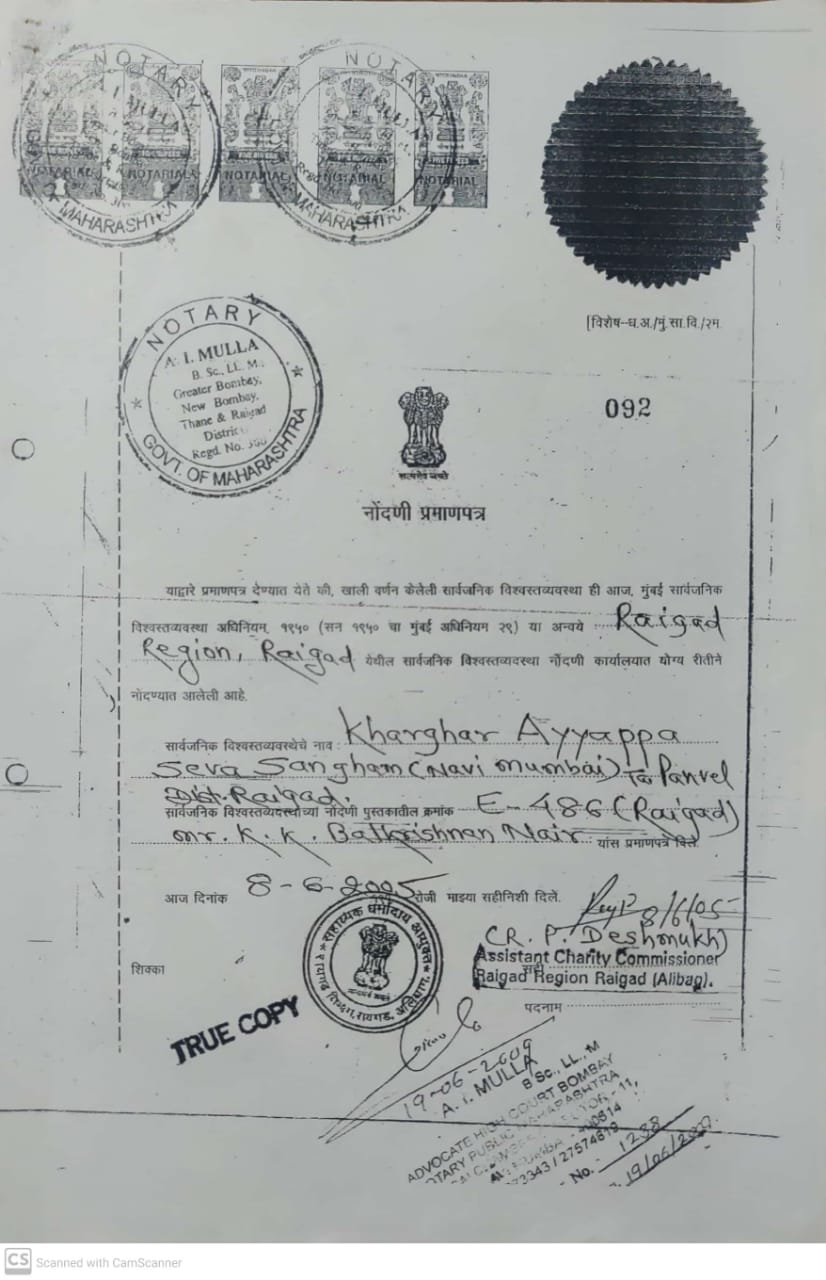 NOTARY
A. I. MULLA
MAHARASHTRA
NOTARIAL NOTARIAL NOTARIAL NOTARIAL NOTARIAL
NOTARY
A. I. MULLA
MAHARASHTRA
[विशेष-ध.अ./मुं.सा.वि./२म
NOTARY
A. I. MULLA
B. Sc., LL. M.,
Greater Bombay,
New Bombay,
Thane & Raigad
District
Regd. No.
GOVT. OF MAHARASHTRA
092
सत्यमेव जयते
नोंदणी प्रमाणपत्र
याद्वारे प्रमाणपत्र देण्यात येते की, खाली वर्णन केलेली सार्वजनिक विश्वस्तव्यवस्था ही आज, मुंबई सार्वजनिक
विश्वस्तव्यवस्था अधिनियम, १९५० (सन १९५० चा मुंबई अधिनियम २९) या अन्वये Raigad
Region, Raigad येथील सार्वजनिक विश्वस्तव्यवस्था नोंदणी कार्यालयात योग्य रीतीने
नोंदण्यात आलेली आहे.
सार्वजनिक विश्वस्तव्यवस्थेचे नाव : Kharghar Ayyappa
Seva Sangham (Navi mumbai) Ta Panvel
Dist. Raigad.
सार्वजनिक विश्वस्तव्यवस्थेच्या नोंदणी पुस्तकातील क्रमांक E-486 (Raigad)
mr. K. K. Balkrishnan Nair यांस प्रमाणपत्र दिले.
आज दिनांक 8-6-2005 रोजी माझ्या सहीनिशी दिलें.
8/6/05
(R. P. Deshmukh)
Assistant Charity Commissioner
सही
Raigad Region Raigad (Alibag).
शिक्का
सहाय्यक धर्मादाय आयुक्त
रायगड विभाग, रायगड, अलिबाग.
पदनाम
TRUE COPY
19-06-2009
A. I. MULLA
B Sc., LL. M
ADVOCATE HIGH COURT BOMBAY
NOTARY PUBLIC MAHARASHTRA
SECTOR - 11,
73343 / 27574619
No. 1238
19/06/2009
CS Scanned with CamScanner